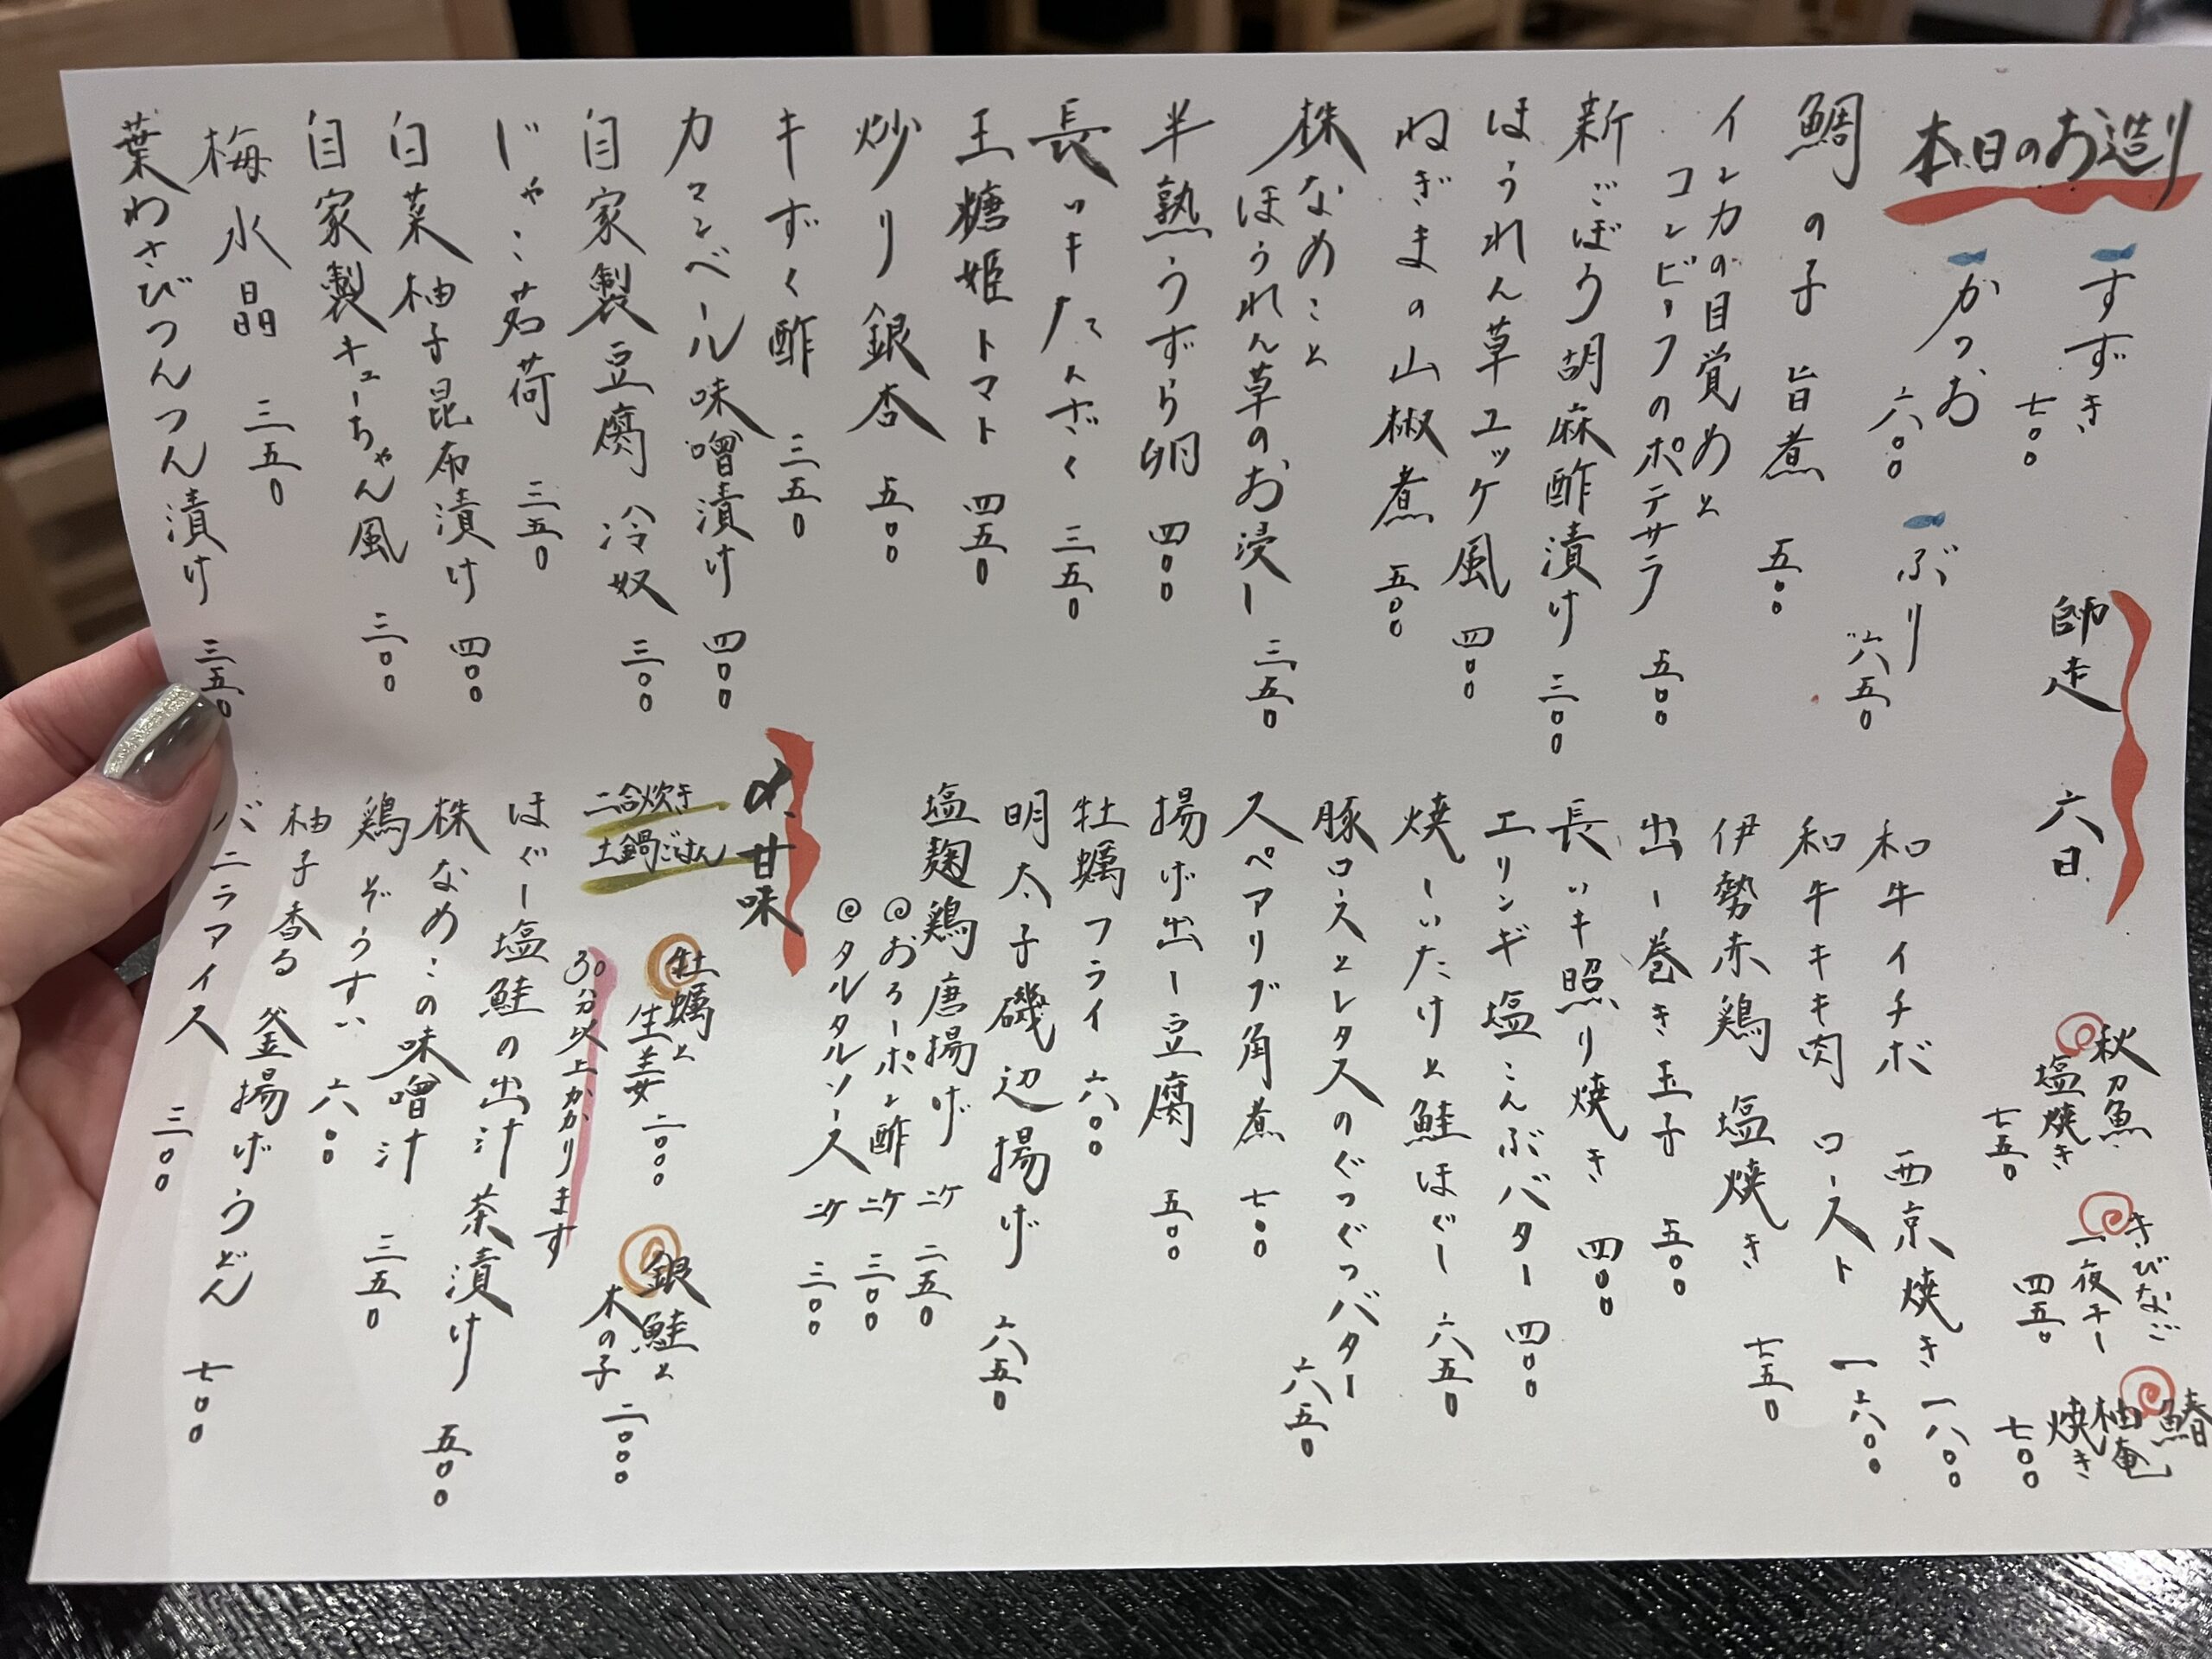 本日のお造り
すずき
七〇〇
かつお
六〇〇
ぶり
六五〇
師走 六日
鯛の子 旨煮 五〇〇
インカの目覚めと
コンビーフのポテサラ 五〇〇
新ごぼう胡麻酢漬け 三〇〇
ほうれん草ユッケ風 四〇〇
ねぎまの山椒煮 五〇〇
株なめこと
ほうれん草のお浸し 三五〇
半熟うずら卵 四〇〇
長いキたんざく 三五〇
王糖姫トマト 四五〇
炒り銀杏 五〇〇
キずく酢 三五〇
カマンベール味噌漬け 四〇〇
自家製豆腐 冷奴 三〇〇
じゃこ茗荷 三五〇
白菜柚子昆布漬け 四〇〇
自家製キューちゃん風 三〇〇
梅水晶 三五〇
葉わさびつんつん漬け 三五〇
秋刀魚
塩焼き
七五〇
きびなご
一夜干し
四五〇
鰆
柚庵
焼き
七〇〇
和牛イチボ 西京焼き 一八〇〇
和牛キキ肉 ロースト 一六〇〇
伊勢赤鶏 塩焼き 七五〇
出し巻き玉子 五〇〇
長いキ照り焼き 四〇〇
エリンギ塩こんぶバター 四〇〇
焼しいたけと鮭ほぐし 六五〇
豚ロースとレタスのぐつぐつバター 六五〇
スペアリブ角煮 七〇〇
揚げ出し豆腐 五〇〇
牡蠣フライ 六〇〇
明太子磯辺揚げ 六五〇
塩麹鶏唐揚げ 二ケ 二五〇
おろしポン酢 二ケ 三〇〇
タルタルソース 二ケ 三〇〇
〆、甘味
二合炊き
土鍋ごはん
牡蠣と
生姜 二〇〇〇
銀鮭と
木の子 二〇〇〇
30分以上かかります
ほぐし塩鮭の出汁茶漬け 五〇〇
株なめこの味噌汁 三五〇
鶏ぞうすい 六〇〇
柚子香る 釜揚げうどん 七〇〇
バニラアイス 三〇〇